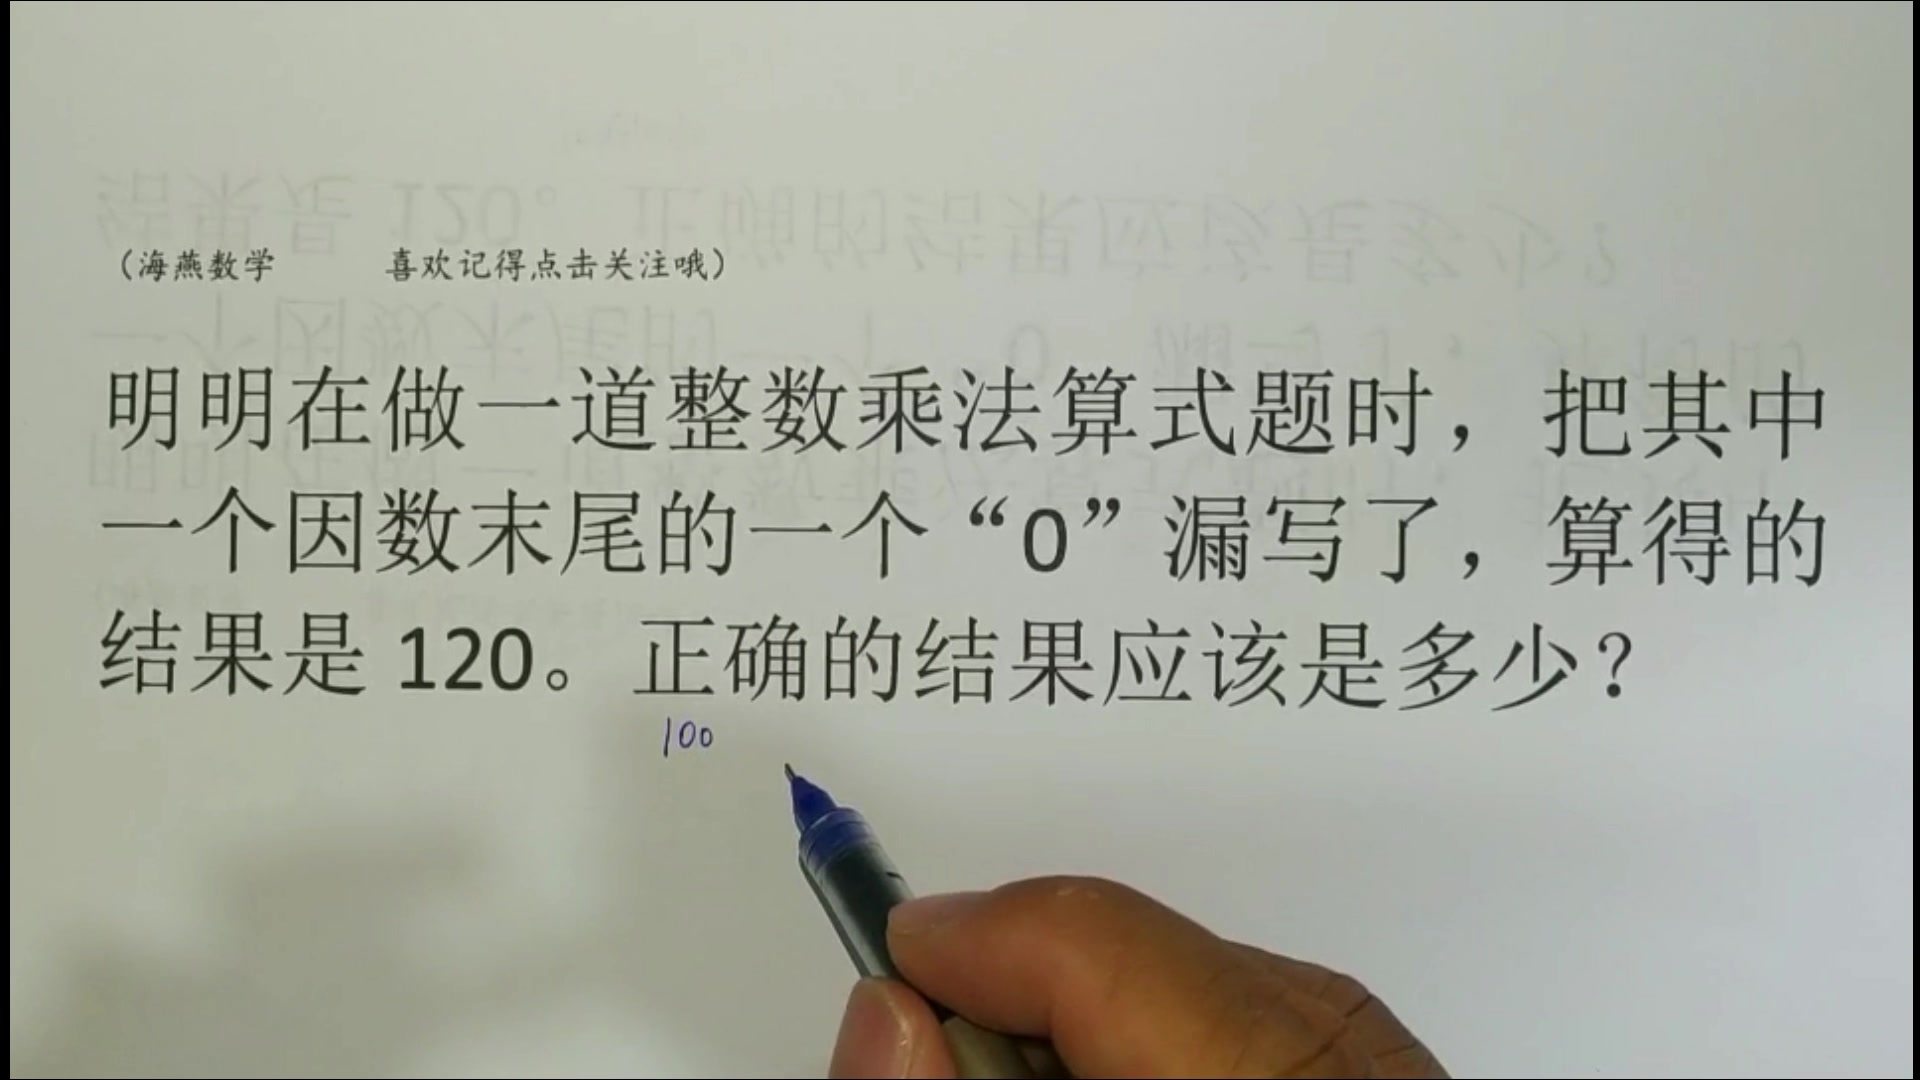 （海燕数学 喜欢记得点击关注哦）
明明在做一道整数乘法算式题时，把其中
一个因数末尾的一个“0”漏写了，算得的
结果是 120。正确的结果应该是多少？
100